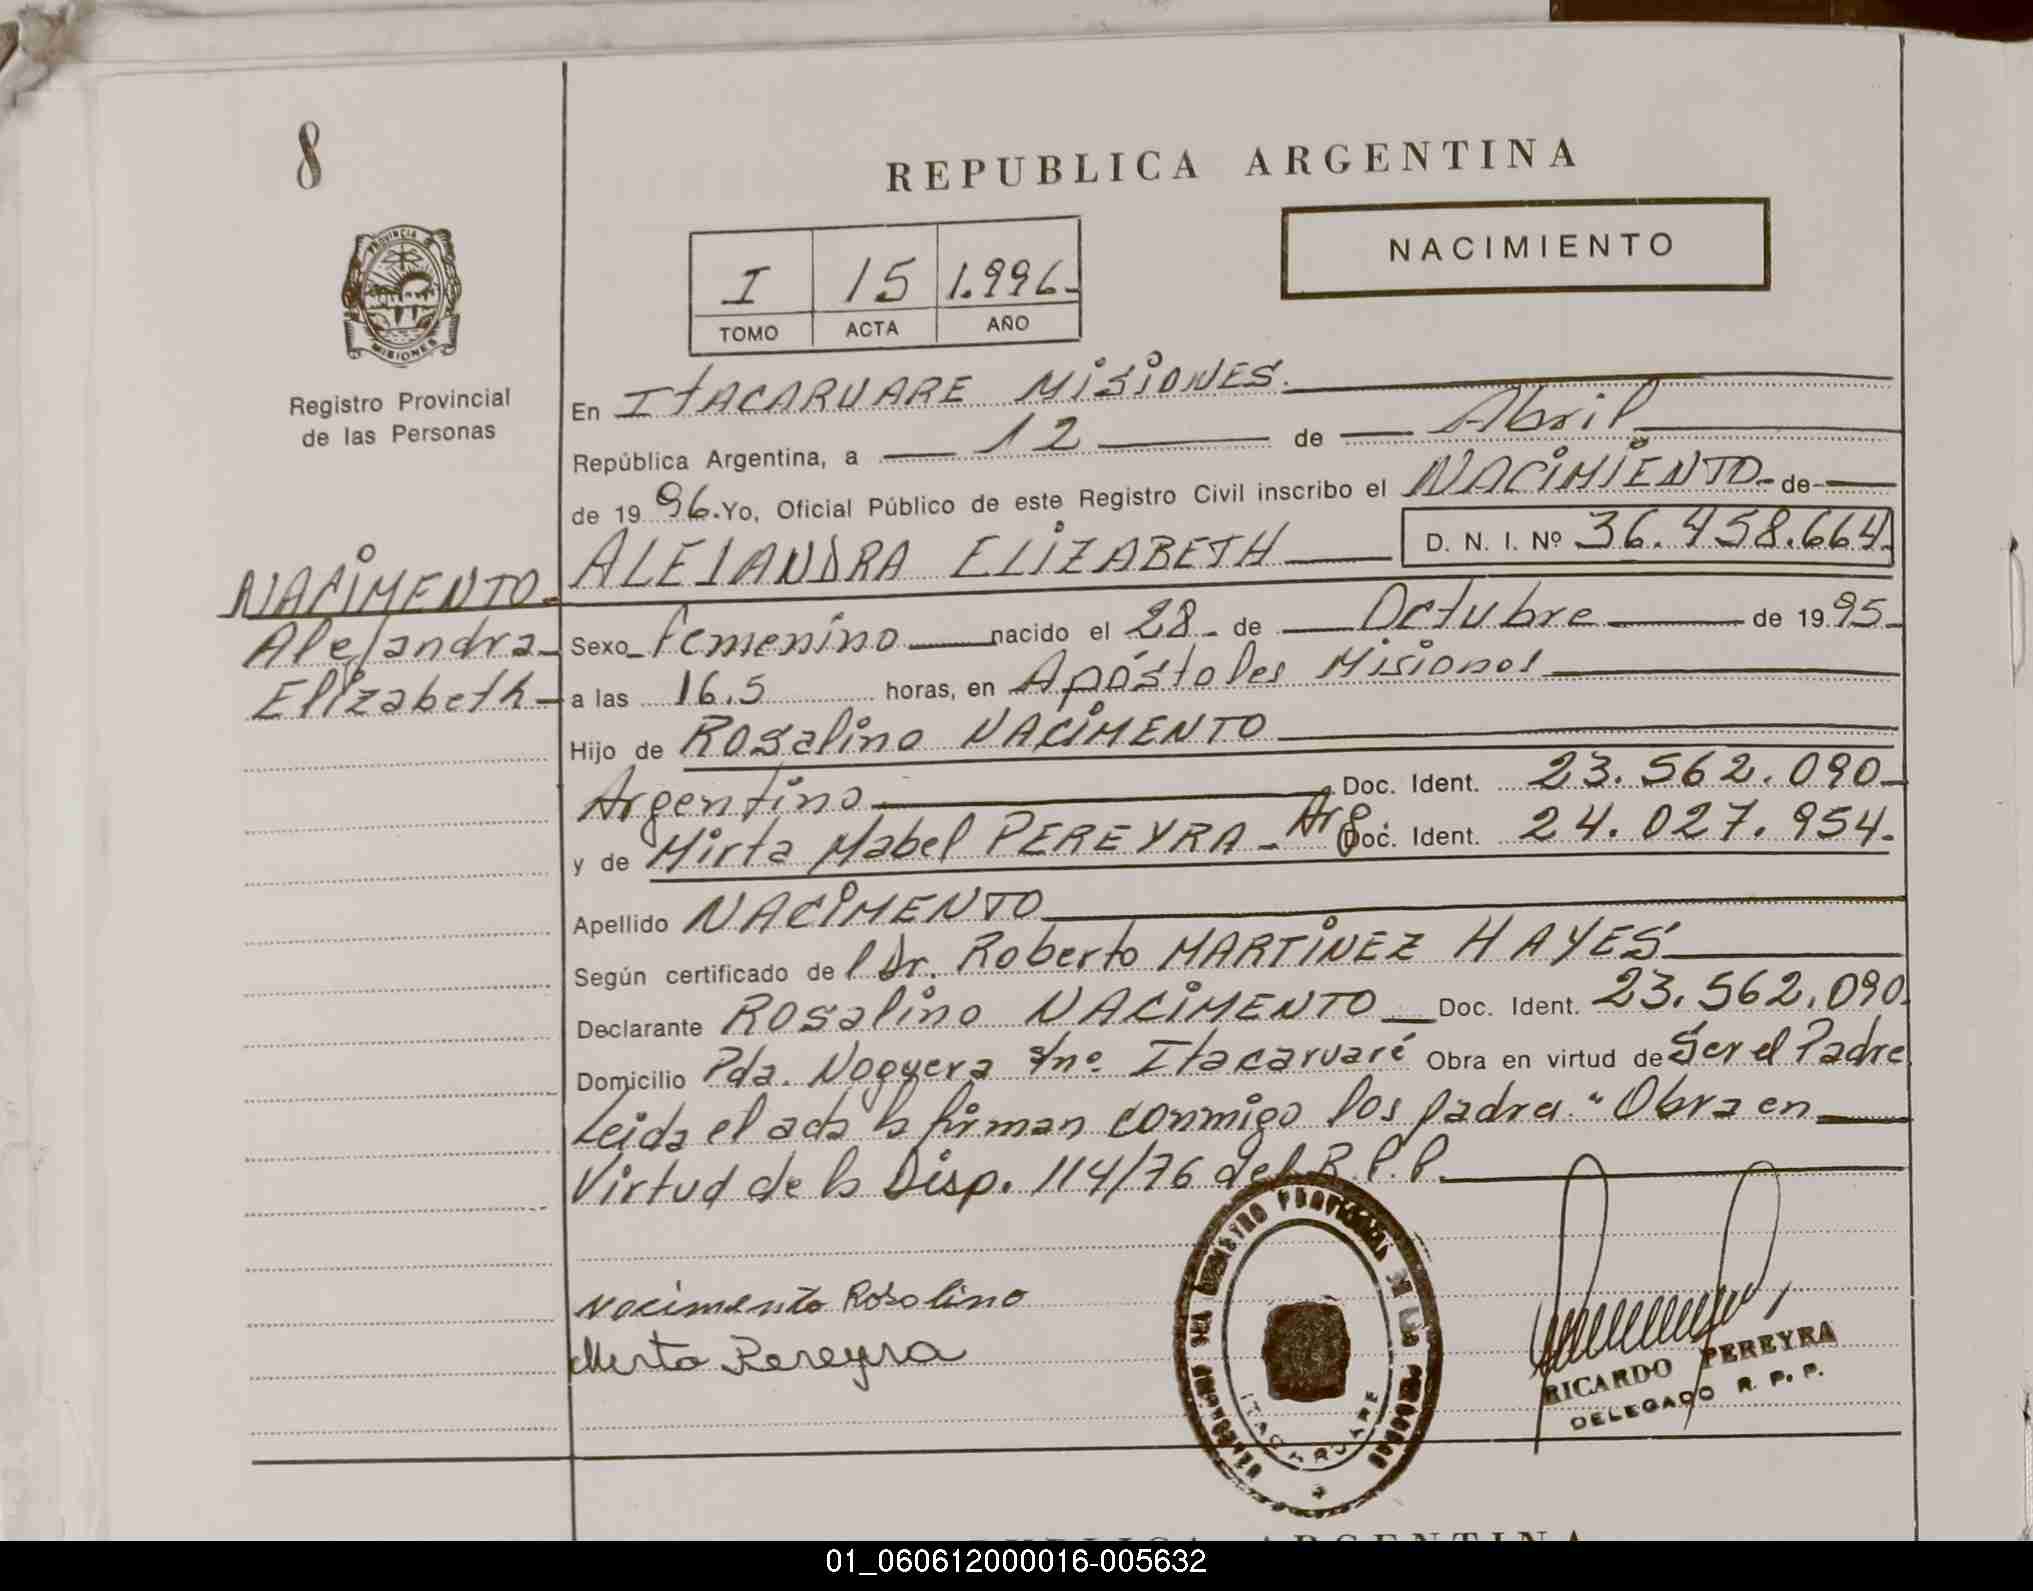 8
REPUBLICA ARGENTINA
NACIMIENTO
I 15 1.996.-
TOMO ACTA AÑO
PROVINCIA
MISIONES
Registro Provincial
de las Personas
En ITACARUARE MISIONES.
República Argentina, a 12 de Abril
de 1996. Yo, Oficial Público de este Registro Civil inscribo el NACIMIENTO- de-
ALEJANDRA ELIZABETH D. N. I. Nº 36.458.664.
NACIMENTO.
Alejandra-
Elizabeth-
Sexo- femenino nacido el 28- de Octubre de 1995-
a las 16.5 horas, en Apóstoles Misiones
Hijo de Rosalino NACIMENTO
Argentino Doc. Ident. 23.562.090-
y de Mirta Mabel PEREYRA- Arg. Doc. Ident. 24.027.954.
Apellido NACIMENTO
Según certificado de l Dr. Roberto MARTINEZ HAYES
Declarante Rosalino NACIMENTO Doc. Ident. 23.562.090.
Domicilio Pda. Noguera s/nº Itacaruaré Obra en virtud de Ser el Padre
Leida el acta la firman conmigo los padres "Obra en
Virtud de la Disp. 114/76 del R.P.P.
Nacimento Rosalino
Mirta Pereyra
ITACARUARE
RICARDO PEREYRA
DELEGADO R. P. P.
01_060612000016-005632